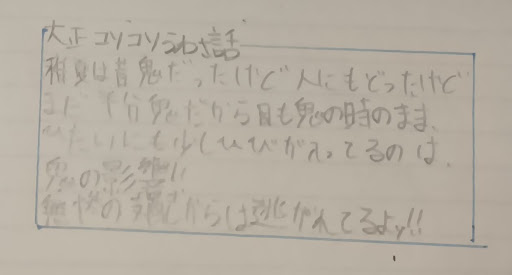 大正コソコソうわさ話
稚兄は昔鬼だったけど人にもどったけど
まだ半分鬼だから目も鬼の時のまま、
ひたいにも少しひびがえってるのは、
鬼の影響!!
無惨の からは逃がれてるよッ!!